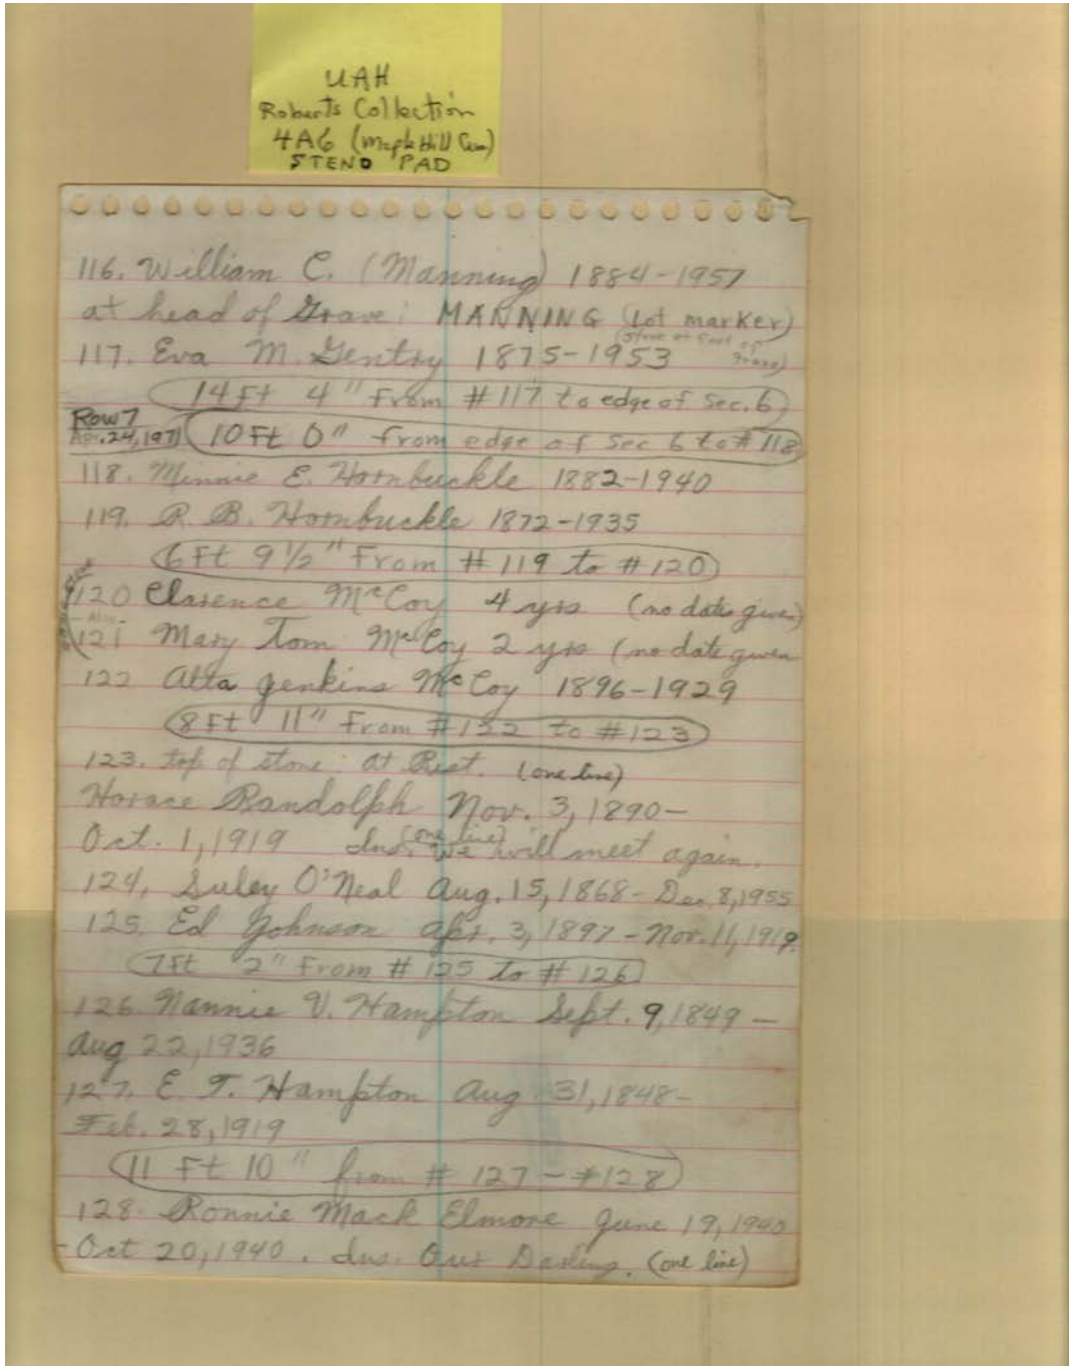 UAH
Roberts Collection
4A6 (Maple Hill Cem)
STENO PAD
116. William C. (Manning) 1884-1957
at head of Grave: MANNING (Lot marker)
(Stone at foot of grave)
117. Eva M. Gentry 1875-1953
14 Ft 4" From #117 to edge of Sec. 6
Row 7
Apr. 24, 1971
10 Ft 0" from edge of Sec 6 to #118
118. Minnie E. Hornbuckle 1882-1940
119. R. B. Hornbuckle 1872-1935
6 Ft 9 1/2" From #119 to #120
120 Clarence McCoy 4 yrs (no date given)
121 Mary Tom McCoy 2 yrs (no date given
122 Alta Jenkins McCoy 1896-1929
8 Ft 11" From #122 to #123
123. top of stone: At Rest. (one line)
Horace Randolph Nov. 3, 1890-
Oct. 1, 1919 Ins. We will meet again.
(one line)
124. Suley O'Neal Aug. 15, 1868-Dec. 8, 1955
125. Ed Johnson Apr. 3, 1897-Nov. 11, 1919.
7 Ft 2" From #125 to #126
126. Nannie V. Hampton Sept. 9, 1849-
Aug 22, 1936
127. E. T. Hampton Aug 31, 1848-
Feb. 28, 1919
11 Ft 10" from #127-#128
128. Ronnie Mack Elmore June 19, 1940
-Oct 20, 1940. Ins. Our Darling. (one line)